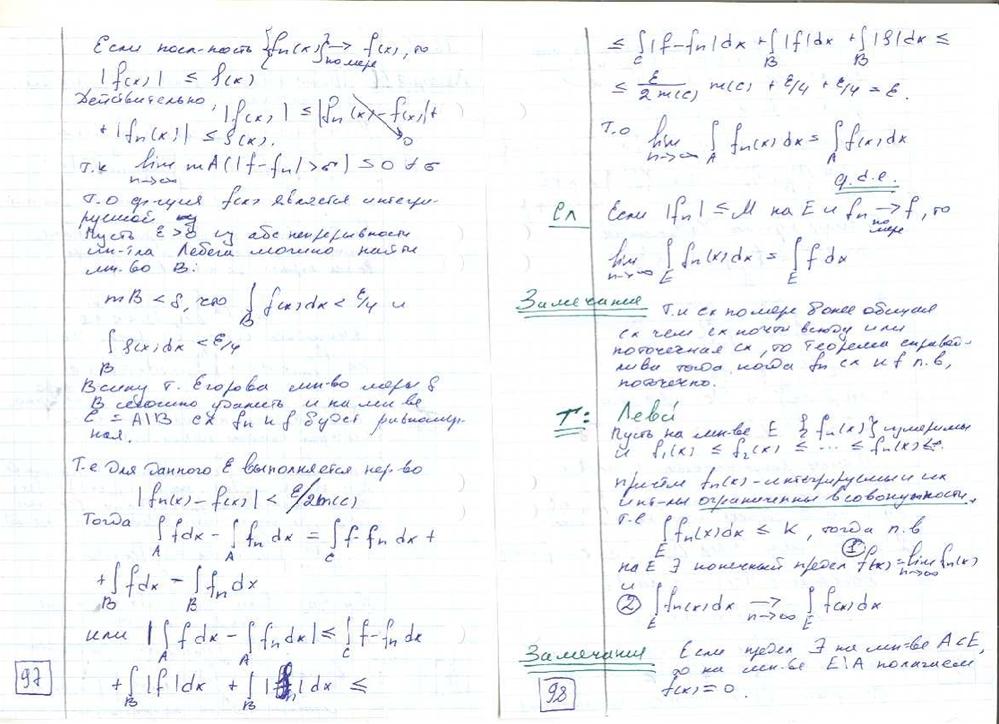 Если посл-ность {fₙ(x)} → f(x), то
по мере
|f(x)| ≤ φ(x)
Действительно, |f(x)| ≤ |fₙ(x)-f(x)|+
→ 0
+ |fₙ(x)| ≤ φ(x).
т.к lim mA(|f-fₙ|>σ) = 0 ∀ σ
n→∞
Т.О ф-ция f(x) является интегри-
руемой
Пусть ε>0 из абс непрерывности
ин-тла Лебега можно найти
мн-во B:
mB < δ, что ∫ f(x)dx < ε/4 и
B
∫ φ(x)dx < ε/4
B
В силу т. Егорова мн-во меры δ
B можно удалить и на мн-ве
C = A\B сх fₙ к f будет равномер-
ная.
Т-е для данного ε выполняется нер-во
|fₙ(x) - f(x)| < ε/2m(c)
Тогда
∫ fdx - ∫ fₙ dx = ∫ f-fₙ dx +
A A C
+ ∫ fdx - ∫ fₙ dx
B B
или |∫ f dx - ∫ fₙ dx| ≤ ∫ f-fₙ dx
A A C
+ ∫ |f|dx + ∫ |fₙ|dx ≤
B B
97
≤ ∫ |f-fₙ|dx + ∫ |f|dx + ∫ |φ|dx ≤
C B B
≤ ε/2m(c) m(c) + ε/4 + ε/4 = ε.
Т.О lim ∫ fₙ(x)dx = ∫ f(x)dx
n→∞ A A
q.d.e.
Сл Если |fₙ| ≤ M на E и fₙ → f, то
по мере
lim ∫ fₙ(x)dx = ∫ f dx
n→∞ E E
Замечания Т.к сх по мере более общая
сх чем сх почти всюду или
поточечная сх, то теорема справед-
лива тогда, когда fₙ сх к f п.в,
поточечно.
Т: Леви
Пусть на мн-ве E {fₙ(x)} измеримы
и f₁(x) ≤ f₂(x) ≤ ... ≤ fₙ(x) ≤..
причём fₙ(x) - интегрируемы и их
инт-лы ограниченны в совокупности,
т-е
∫ fₙ(x)dx ≤ K, тогда п.в
E
на E ∃ конечный предел ① f(x) = lim fₙ(x)
n→∞
и
② ∫ fₙ(x)dx → ∫ f(x)dx
E n→∞ E
Замечания Если предел ∃ на мн-ве A⊂E,
то на мн-ве E\A полагаем
f(x) = 0.
98